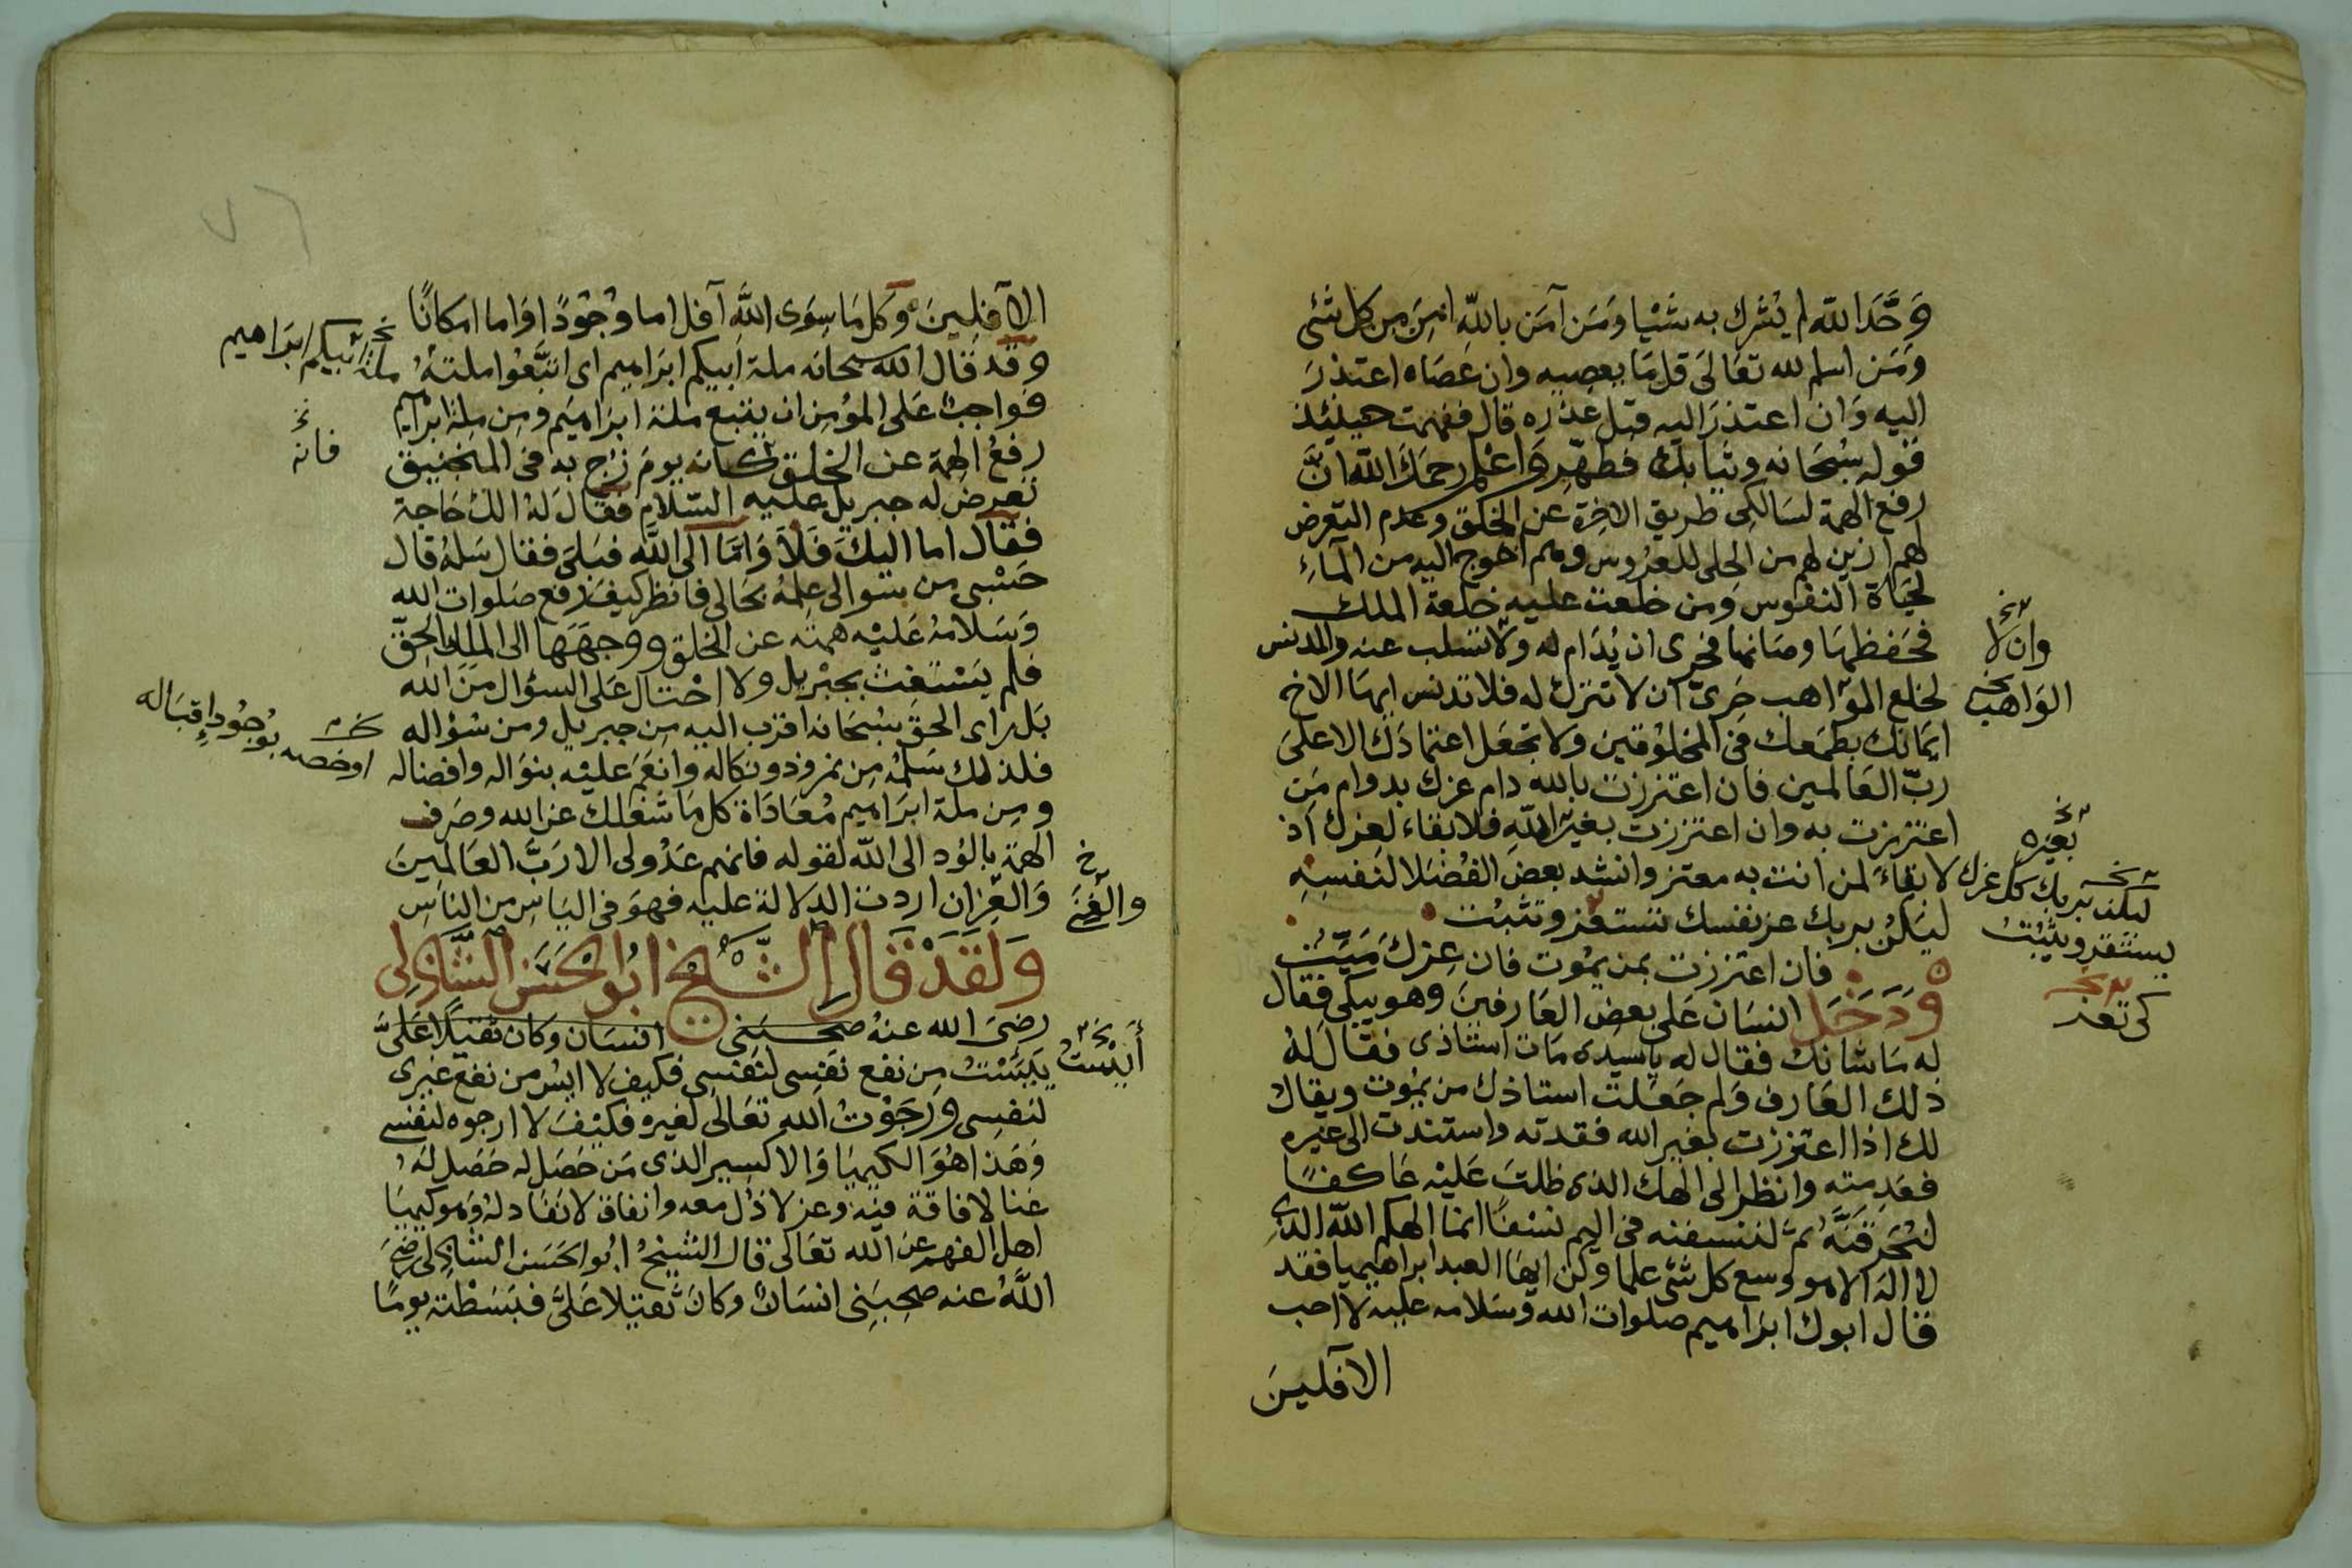 وَحَّدَ الله لم يُشرك به شَيْيا وَمَن آمَن بالله امِنَ مِن كل شئى
وَمَن اسلم لله تعَالىَ قل مَا يعصيه وان عَصَاه اعتذرَ
اليه وَان اعتذرَ اليه قبل عذره قال ففهمت حينئذ
قوله سُبحَانه وثيابك فطهّر وَاعْلم رحمَك الله انَّ
رفع الهمة لسَالكى طريق الاخرة عن الخلق وعدم التعرض
لهم ازين لهم من الحلى للعرُوس وهم احوج اليه من المآءِ
لحيَاة النفوس وَمن خلعت عليه خلعة الملك
فحَفظهَا وصَانها فحرى ان يُدَام له ولا تسلب عنه والمدنس
لخلع المواهب حَرىّ ان لا تترك له فلا تدنس ايهَا الاخ
ايمَانك بطمَعك فى المخلوُقين ولا تجعَل اعتمادَك الا على
ربّ العَالمين فان اعتززت بالله دام عزك بدوام مَن
اعتززت به وان اعتززت بغير اللهِ فلا بقاء لعزك اذ
لا بقاءَ لمن انت به معتز وانشد بعض الفُضَلا لنفسِهِ
ليكنْ بربك عز نفسك تستقز وتثبُت
فان اعتززت بمن يمُوت فان عِزكَ مَيّتُ
وَدَخَل انسَان عَلى بعض العَارفينَ وهو يبكى فقال
له مَا شانك فقال له يا سيدى مَات استاذى فقالَ لهُ
ذلك العَارف وَلم جَعَلت استاذك من يمُوت ويقال
لك اذا اعتززت بغير الله فقدته واستندت الى غيره
فعَدِمته وانظر الى الهك الذى ظلتَ عَليْه عَاكفًا
لنُحَرقَنَّه ثمّ لننسفنه فى اليم نسْفًا انما الهكم الله الذى
لا اله الا هو وسع كل شئى علما وكن ايهَا العبد ابراهيميا فقد
قال ابوك ابرَاهيم صلوات الله وسَلامه عليه لا احب
الآفلينَ
وان لا
الوَاهب
بغيره
ليكن بربك كل عزك
يستقر ويثبُت
كى تعز
الآفلِينَ وَكل مَا سِوَى اللَّه آفل اما وُجُودًا وَاما امكانًا
وقد قال الله سبحانه ملة ابيكم ابرَاهيم اى اتبَّعُوا ملتهُ
فواجبٌ عَلى المؤمِن ان يتبع ملة ابرَاهيم ومِن مِلة ابراهيم
رفعُ الهمة عن الخلق كانه يومَ زُج به فى المنجنيق
تعرضَ له جبريل عليه السّلام فقالَ لهُ الك حَاجة
فقال اما اليكَ فَلاَ وَامَّا الى اللَّه فبَلى فقال سَلهُ قال
حَسْبى من سوالى عِلمُه بحَالى فانظر كيفَ رفع صَلوات الله
وَسَلامُه عَليْه همته عن الخلق ووجهَهَا الى الملك الحقّ
فلم يَسْتَغث بجبْريل ولا احْتال عَلى السؤال منَ الله
بَل راى الحقَ سبْحَانه اقرب اليه مِن جبريل ومن سُؤاله
فلذلك سَلمهُ مِن نمرود ونكاله وانعَم عليْه بنوَاله وافضاله
ومِن ملة ابرَاهيم مُعَادَاة كل مَا شغلك عن الله وصَرف
الهمّة بالوُد الى الله لقوله فانهم عَدُو لى الا رَبَّ العَالمينَ
وَالعِز ان اردت الدلالة عليه فهوَ فى اليَاسِ من النَاسِ
وَلَقَدْ قَالَ الشَّيْخ ابُو الحَسَن الشَّاذِلى
رضىَ الله عنهُ صحبَنى انسَان وكان ثقيلًا عَلىَّ
يَئِسْتُ مِن نفع نفَسِى لنَفسى فكيف لا ايئس من نفع غيرى
لنفسِى وَرَجَوْتُ الله تعَالى لغيره فكيْفَ لا ارجوه لنفسى
وَهَذا هُوَ الكيميَا وَالاكسير الذى مَن حَصَل له حَصَل لهَ
غنا لا فاقة فيْه وعز لا ذُل معه وانفاق لا نَفادَ له وهوَ كيميَا
اهل الفهمِ عن الله تعَالى قال الشيخُ ابُو الحَسَن الشاذلى رضىَ
اللَّهُ عنه صحِبَنِى انسَانٌ وكانَ ثقيلا عَلىَّ فبَسَطْته يومًا
ملة ابيكم ابرَاهيم
فانه
او خصه بوُجُودِ اِقبَاله
والغِنى
أَيِسْتُ